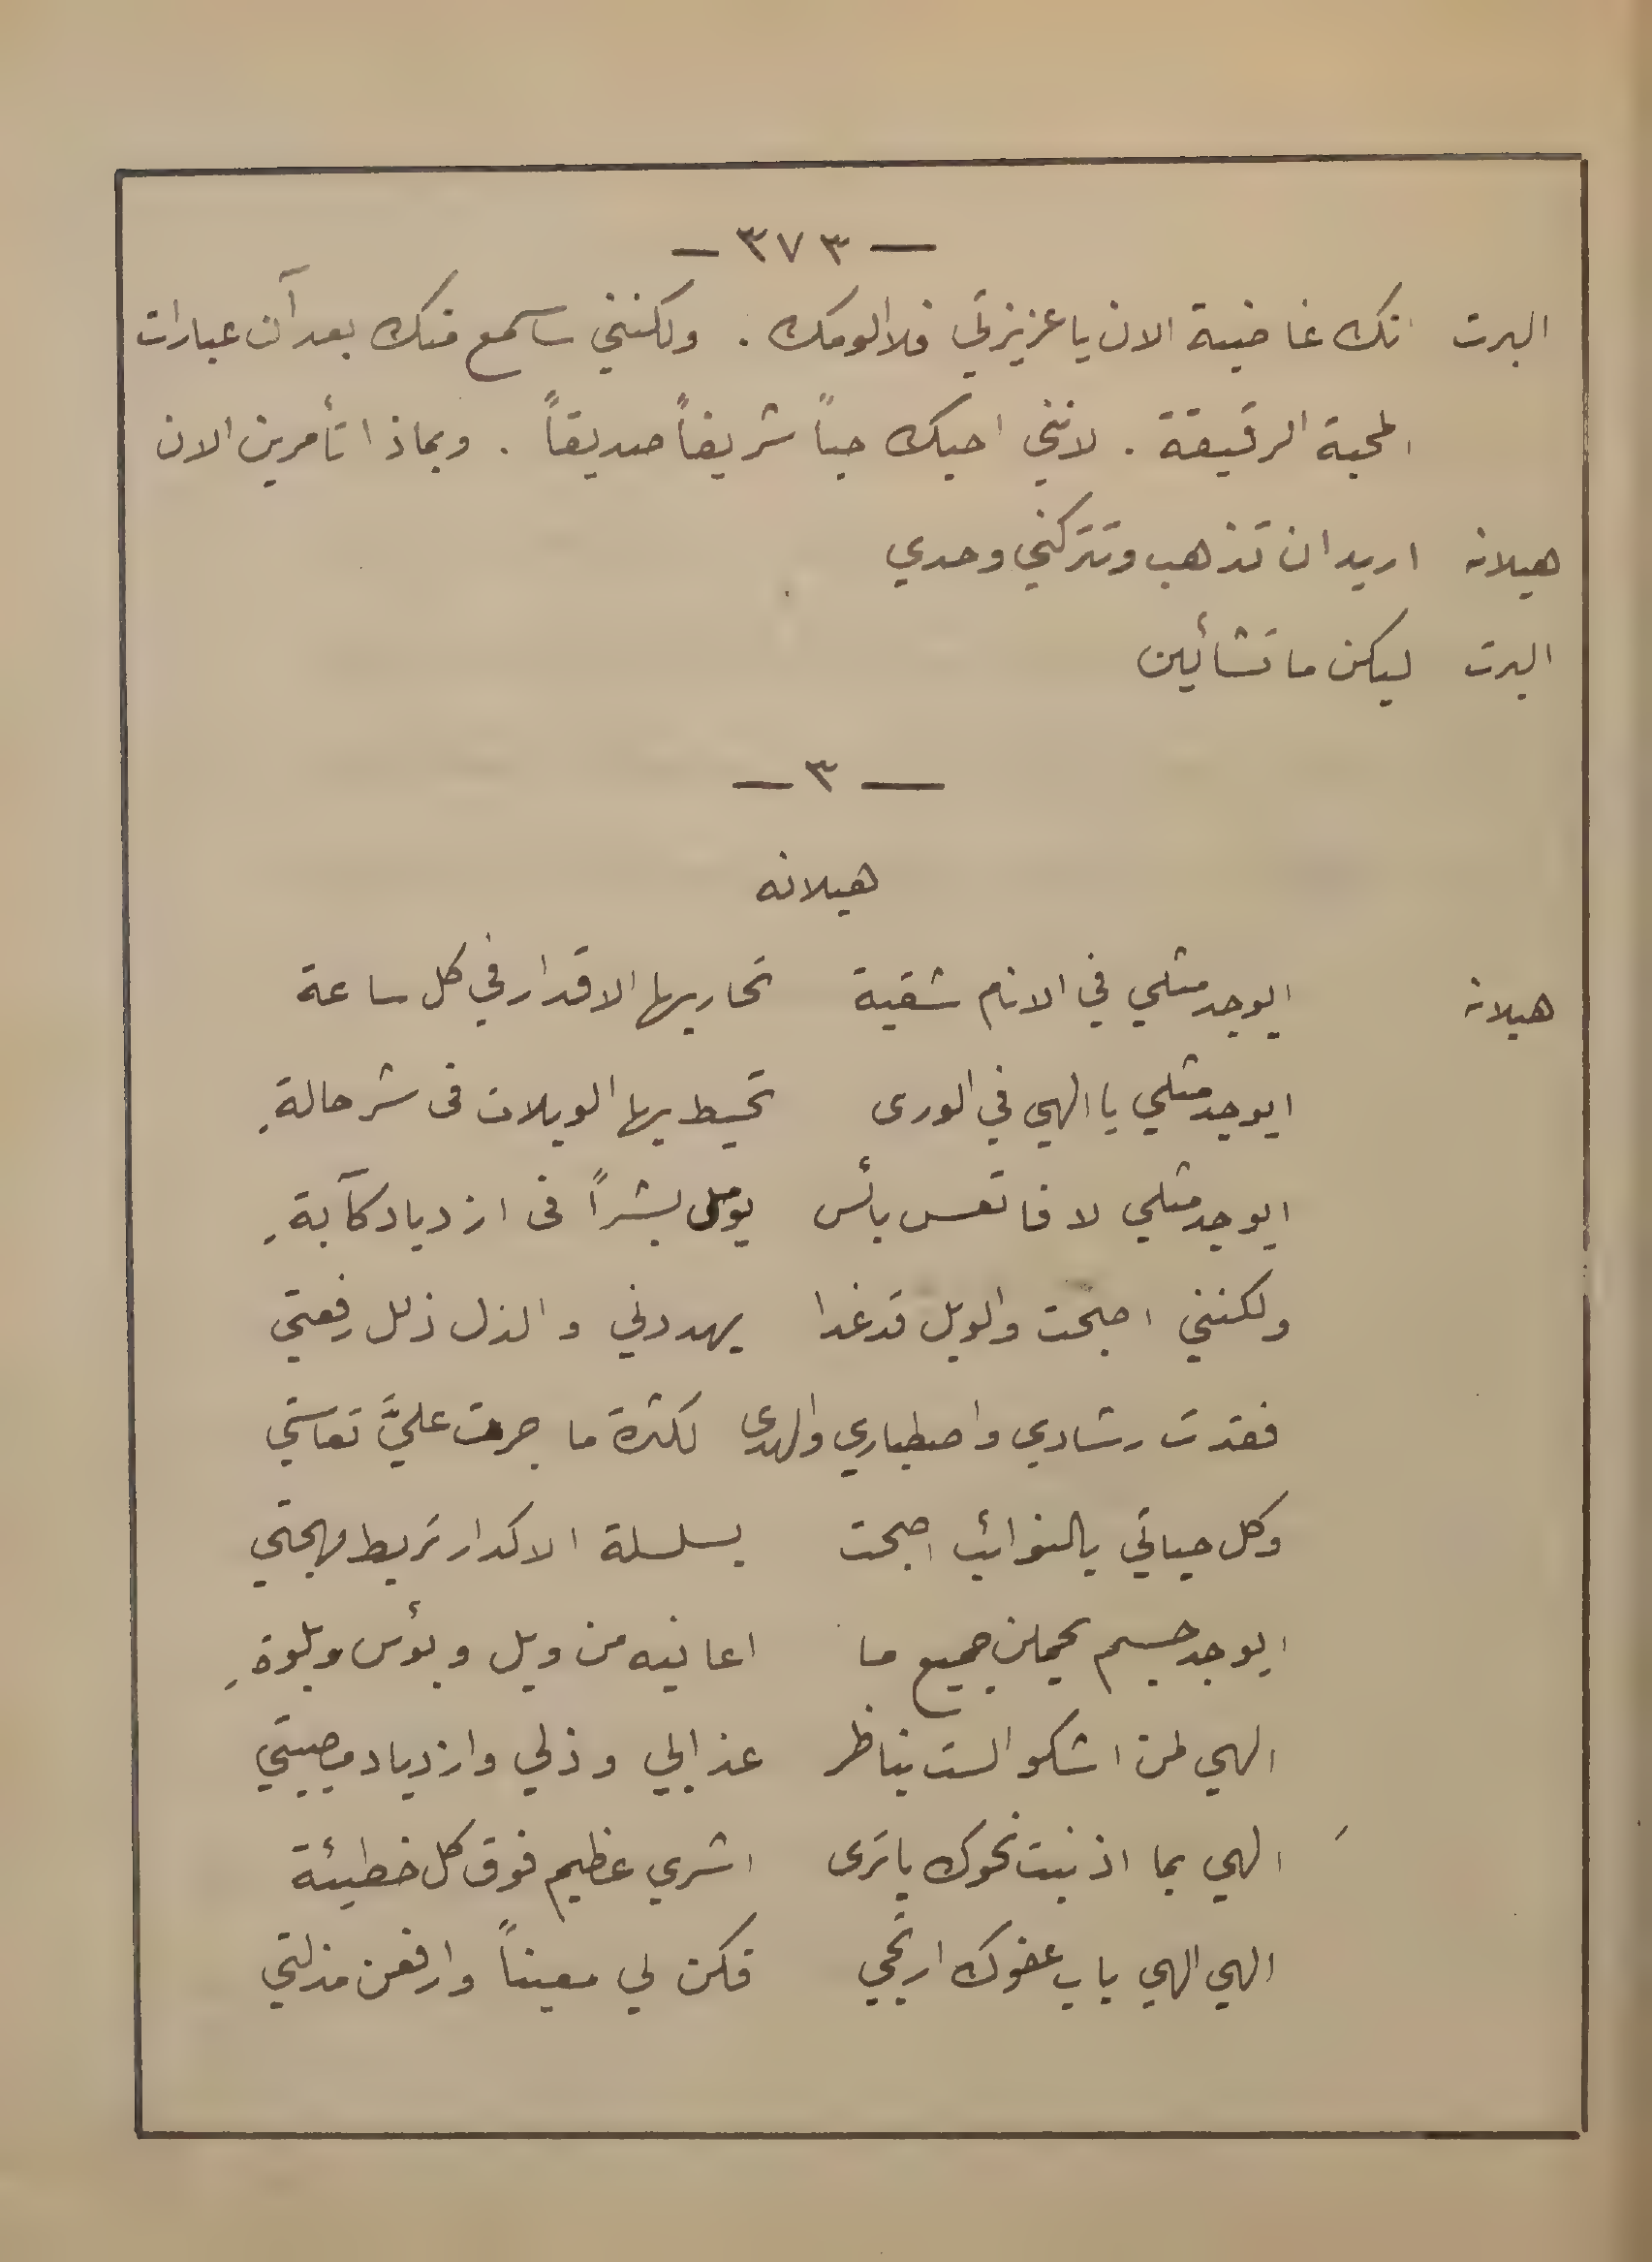 — ٣٧٣ —
البرت انك غاضبة الان يا عزيزتي فلا الومك . ولكنني ساسمع منك بعد آن عبارات
المحبة الرقيقة . لانني احبك حباً شريفاً صديقاً . وبماذا تأمرين الان
هيلانه اريد ان تذهب وتتركني وحدي
البرت ليكن ما تشائين
— ٣ —
هيلانه
هيلانه ايوجد مثلي في الانام شقية تحاربها الاقدار في كل ساعة
ايوجد مثلي يا الهي في الورى تحيط بها الويلات فى شر حالةِ
ايوجد مثلي لافا تعس بائس يومل بشراً فى ازدياد كآبةِ
ولكنني اصبحت والويل قد غدا يهددني والذل ذلل رفعتي
فقدت رشادي واصطباري والهدى لكثرة ما جرت عليَّ تعاستي
وكل حياتي بالنوائب اصبحت بسلسلة الاكدار تربط مهجتي
ايوجد جسم يحملن جميع ما اعانيه من ويل وبؤس وبلوةِ
الهي لمن اشكو الست بناظر عذابي وذلي وازدياد مصيبتي
الهي بما اذنبت نحوك يا ترى اشري عظيم فوق كل خطيئة
الهي الهي باب عفوك ارتجي فكن لي معيناً وارفعن مذلتي